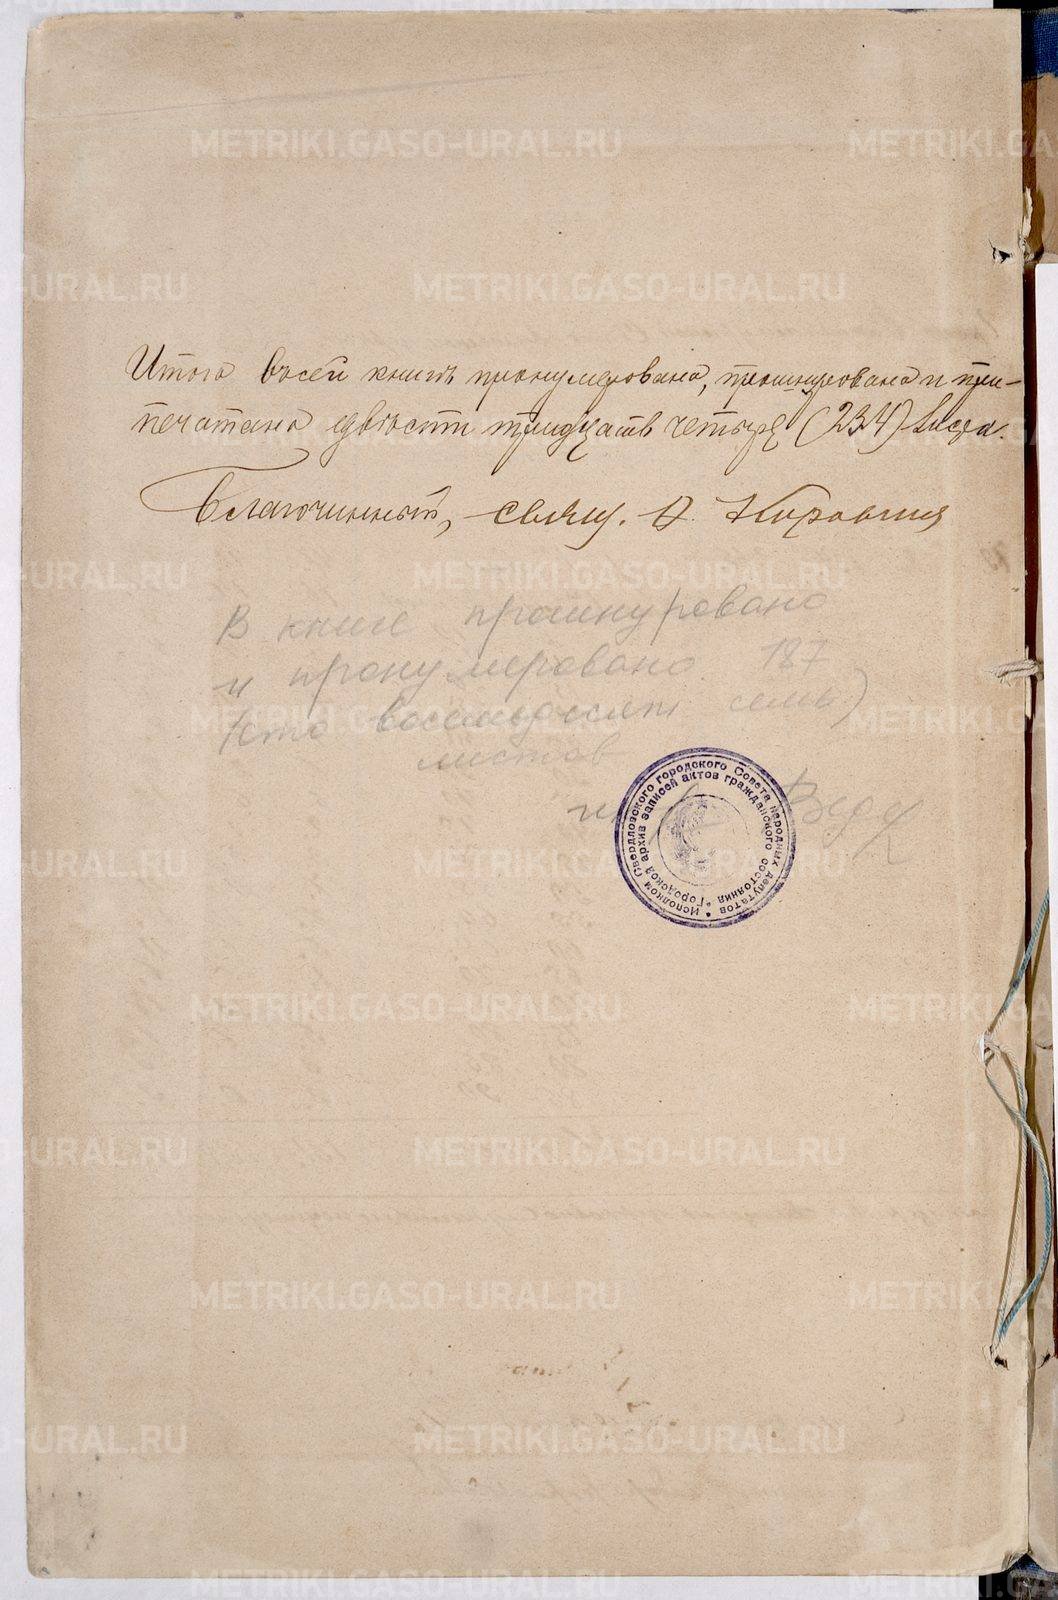 Итого въ сей книгѣ пронумеровано, прошнуровано и при-
печатано двѣсти тридцать четыре (234) листа.
Благочинный, свящ. А. Коровин
В книге прошнуровано
и пронумеровано 187
(сто восемьдесят семь)
листов
Исполком Свердловского городского Совета народных депутатов
Городской архив записей актов гражданского состояния
METRIKI.GASO-URAL.RU